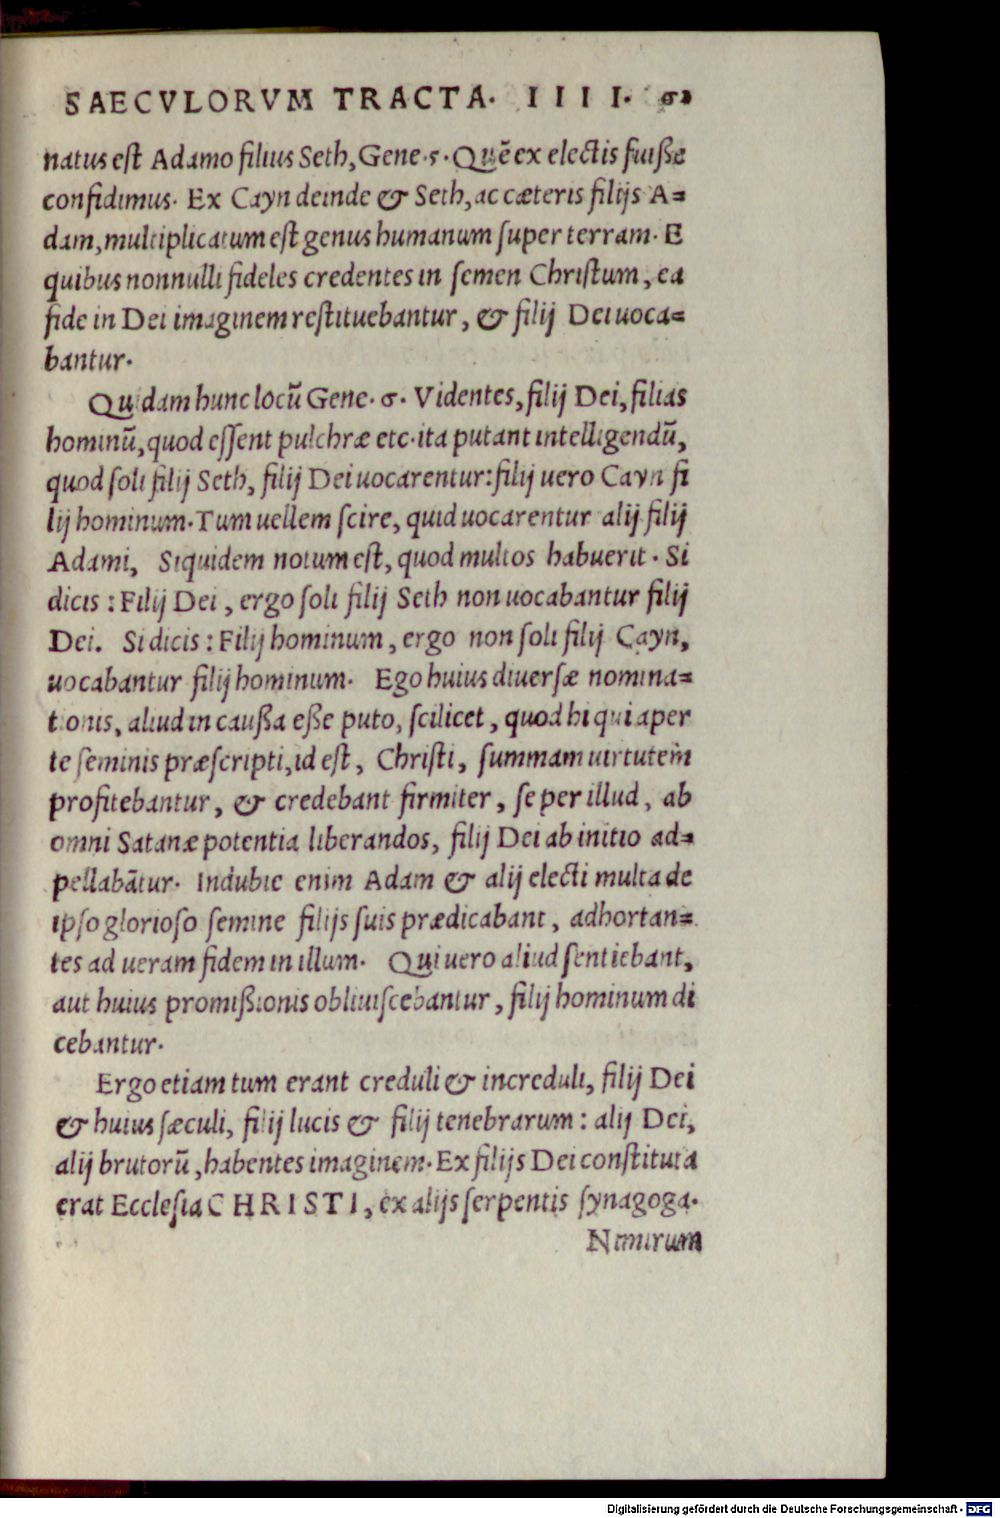 SAECVLORVM TRACTA. IIII. 61
natus eſt Adamo filius Seth, Gene. 5. Quē ex electis fuiſſe
confidimus. Ex Cayn deinde & Seth, ac cæteris filijs A=
dam, multiplicatum eſt genus humanum ſuper terram. E
quibus nonnulli fideles credentes in ſemen Chriſtum, ea
fide in Dei imaginem reſtituebantur, & filij Dei uoca=
bantur.
Quidam hunc locū Gene. 6. Videntes, filij Dei, filias
hominū, quod eſſent pulchræ etc. ita putant intelligendū,
quod ſoli filij Seth, filij Dei uocarentur: filij uero Cayn fi
lij hominum. Tum uellem ſcire, quid uocarentur alij filij
Adami, Siquidem notum eſt, quod multos habuerit. Si
dicis: Filij Dei, ergo ſoli filij Seth non uocabantur filij
Dei. Si dicis: Filij hominum, ergo non ſoli filij Cayn,
uocabantur filij hominum. Ego huius diuerſæ nomina=
tionis, aliud in cauſſa eſſe puto, ſcilicet, quod hi qui aper
te ſeminis præſcripti, id eſt, Chriſti, ſummam uirtutem
profitebantur, & credebant firmiter, ſe per illud, ab
omni Satanæ potentia liberandos, filij Dei ab initio ad=
pellabātur. Indubie enim Adam & alij electi multa de
ipſo glorioſo ſemine filijs ſuis prædicabant, adhortan=
tes ad ueram fidem in illum. Qui uero aliud ſentiebant,
aut huius promiſſionis obliuiſcebantur, filij hominum di
cebantur.
Ergo etiam tum erant creduli & increduli, filij Dei
& huius ſæculi, filij lucis & filij tenebrarum: alij Dei,
alij brutorū, habentes imaginem. Ex filijs Dei conſtituta
erat Eccleſia CHRISTI, ex alijs ſerpentis ſynagoga.
Nimirum
Digitalisierung gefördert durch die Deutsche Forschungsgemeinschaft - DFG